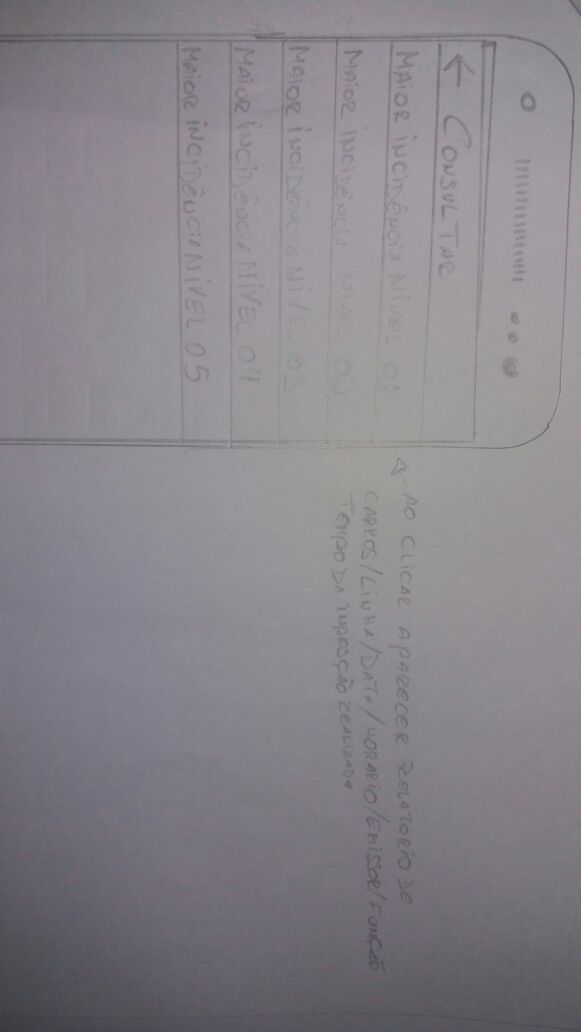 ← CONSULTAR
MAIOR INCIDÊNCIA NÍVEL 01
MAIOR INCIDÊNCIA NÍVEL 02
MAIOR INCIDÊNCIA NÍVEL 03
MAIOR INCIDÊNCIA NÍVEL 04
MAIOR INCIDÊNCIA NÍVEL 05
AO CLICAR APARECER RELATORIO DE
CARROS/LINHA/DATA/HORARIO/EMISSOR/FUNÇÃO
TEMPO DA INPESÇÃO REALIZADA